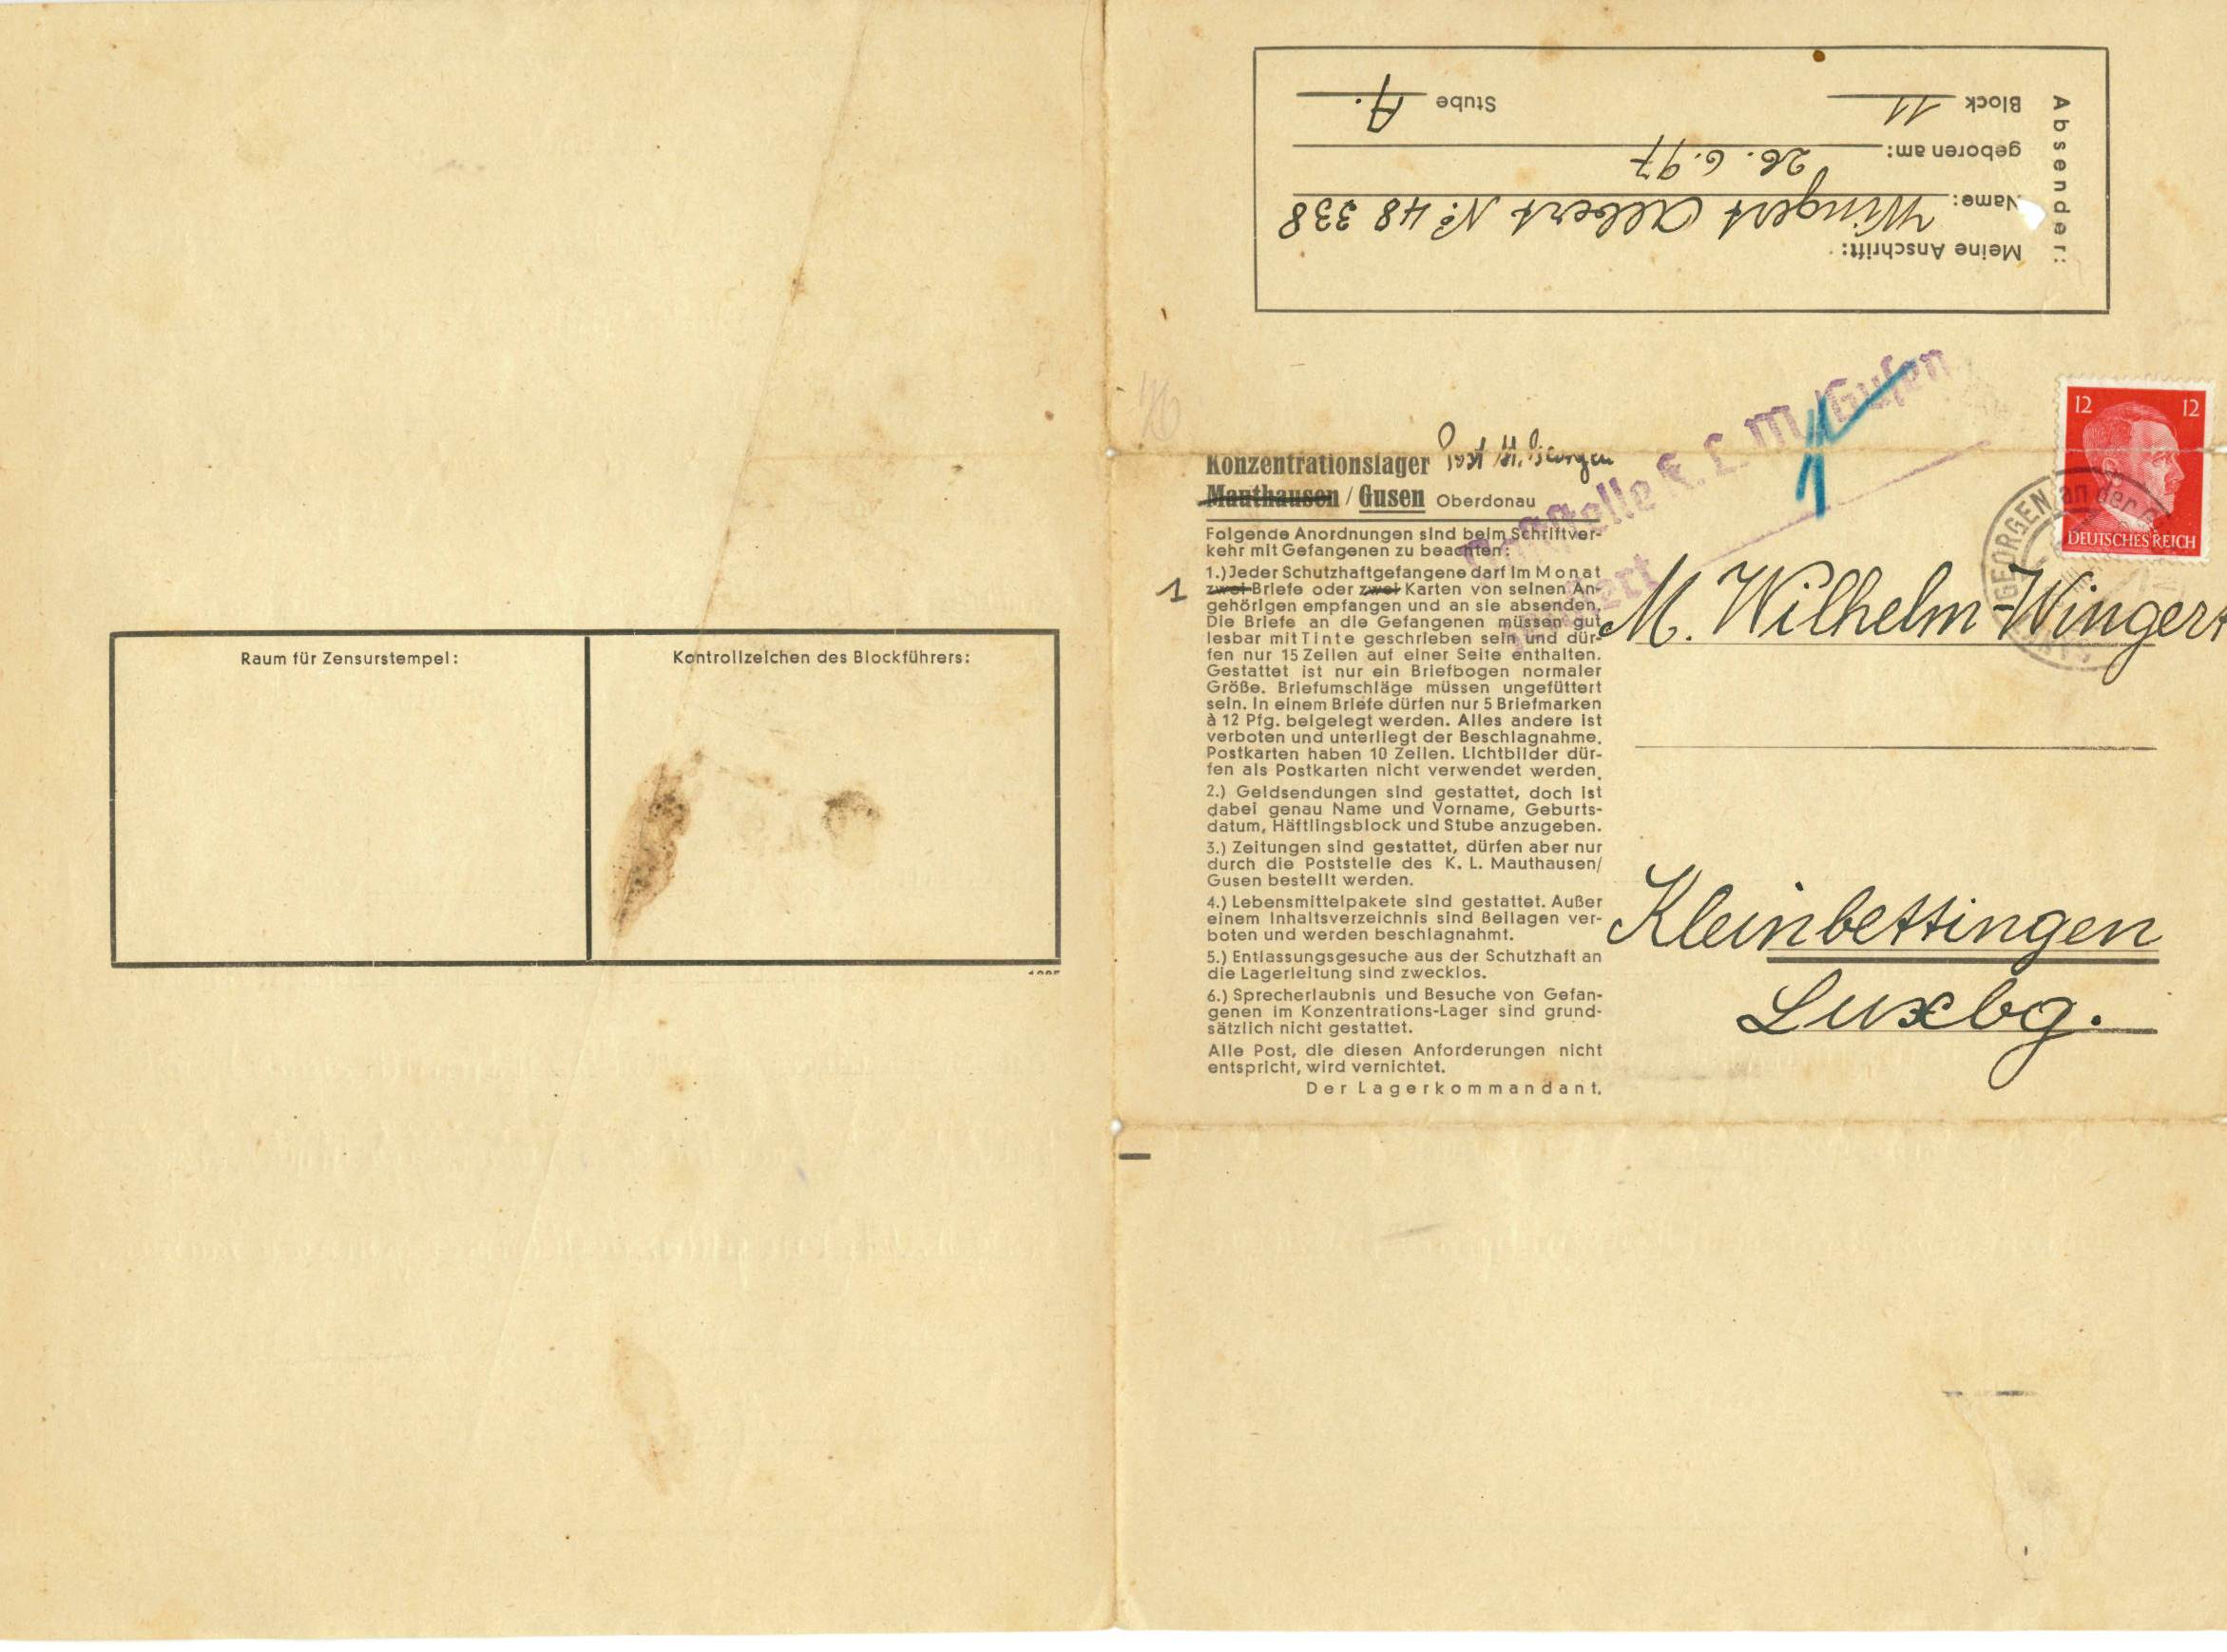 Absender:
Meine Anschrift:
Name: Wingert Albert No. 48 338
geboren am: 26. 6. 97
Block 11 Stube A.
12 12
DEUTSCHES REICH
GEORGEN an der
Poststelle K. L. M/Gusen
Konzentrationslager Post St. Georgen
Mauthausen / Gusen Oberdonau
Folgende Anordnungen sind beim Schriftver-
kehr mit Gefangenen zu beachten:
1.) Jeder Schutzhaftgefangene darf im Monat
1 zwei Briefe oder zwei Karten von seinen An-
gehörigen empfangen und an sie absenden.
Die Briefe an die Gefangenen müssen gut
lesbar mit Tinte geschrieben sein und dür-
fen nur 15 Zeilen auf einer Seite enthalten.
Gestattet ist nur ein Briefbogen normaler
Größe. Briefumschläge müssen ungefüttert
sein. In einem Briefe dürfen nur 5 Briefmarken
à 12 Pfg. beigelegt werden. Alles andere ist
verboten und unterliegt der Beschlagnahme.
Postkarten haben 10 Zeilen. Lichtbilder dür-
fen als Postkarten nicht verwendet werden.
2.) Geldsendungen sind gestattet, doch ist
dabei genau Name und Vorname, Geburts-
datum, Häftlingsblock und Stube anzugeben.
3.) Zeitungen sind gestattet, dürfen aber nur
durch die Poststelle des K. L. Mauthausen/
Gusen bestellt werden.
4.) Lebensmittelpakete sind gestattet. Außer
einem Inhaltsverzeichnis sind Beilagen ver-
boten und werden beschlagnahmt.
5.) Entlassungsgesuche aus der Schutzhaft an
die Lagerleitung sind zwecklos.
6.) Sprecherlaubnis und Besuche von Gefan-
genen im Konzentrations-Lager sind grund-
sätzlich nicht gestattet.
Alle Post, die diesen Anforderungen nicht
entspricht, wird vernichtet.
Der Lagerkommandant.
M. Wilhelm-Wingert
Kleinbettingen
Luxbg.
Raum für Zensurstempel:
Kontrollzeichen des Blockführers: